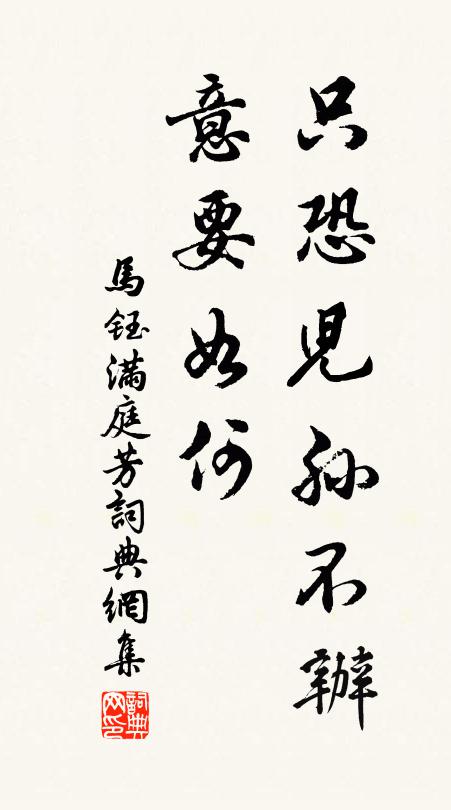 只恐兒孫不辦
意要如何
馬鈺滿庭芳詞典網集
詞典網印